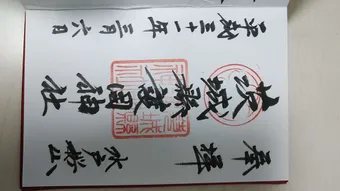 奉拝 水戸桜山
茨城縣護国神社
平成三十一年三月六日